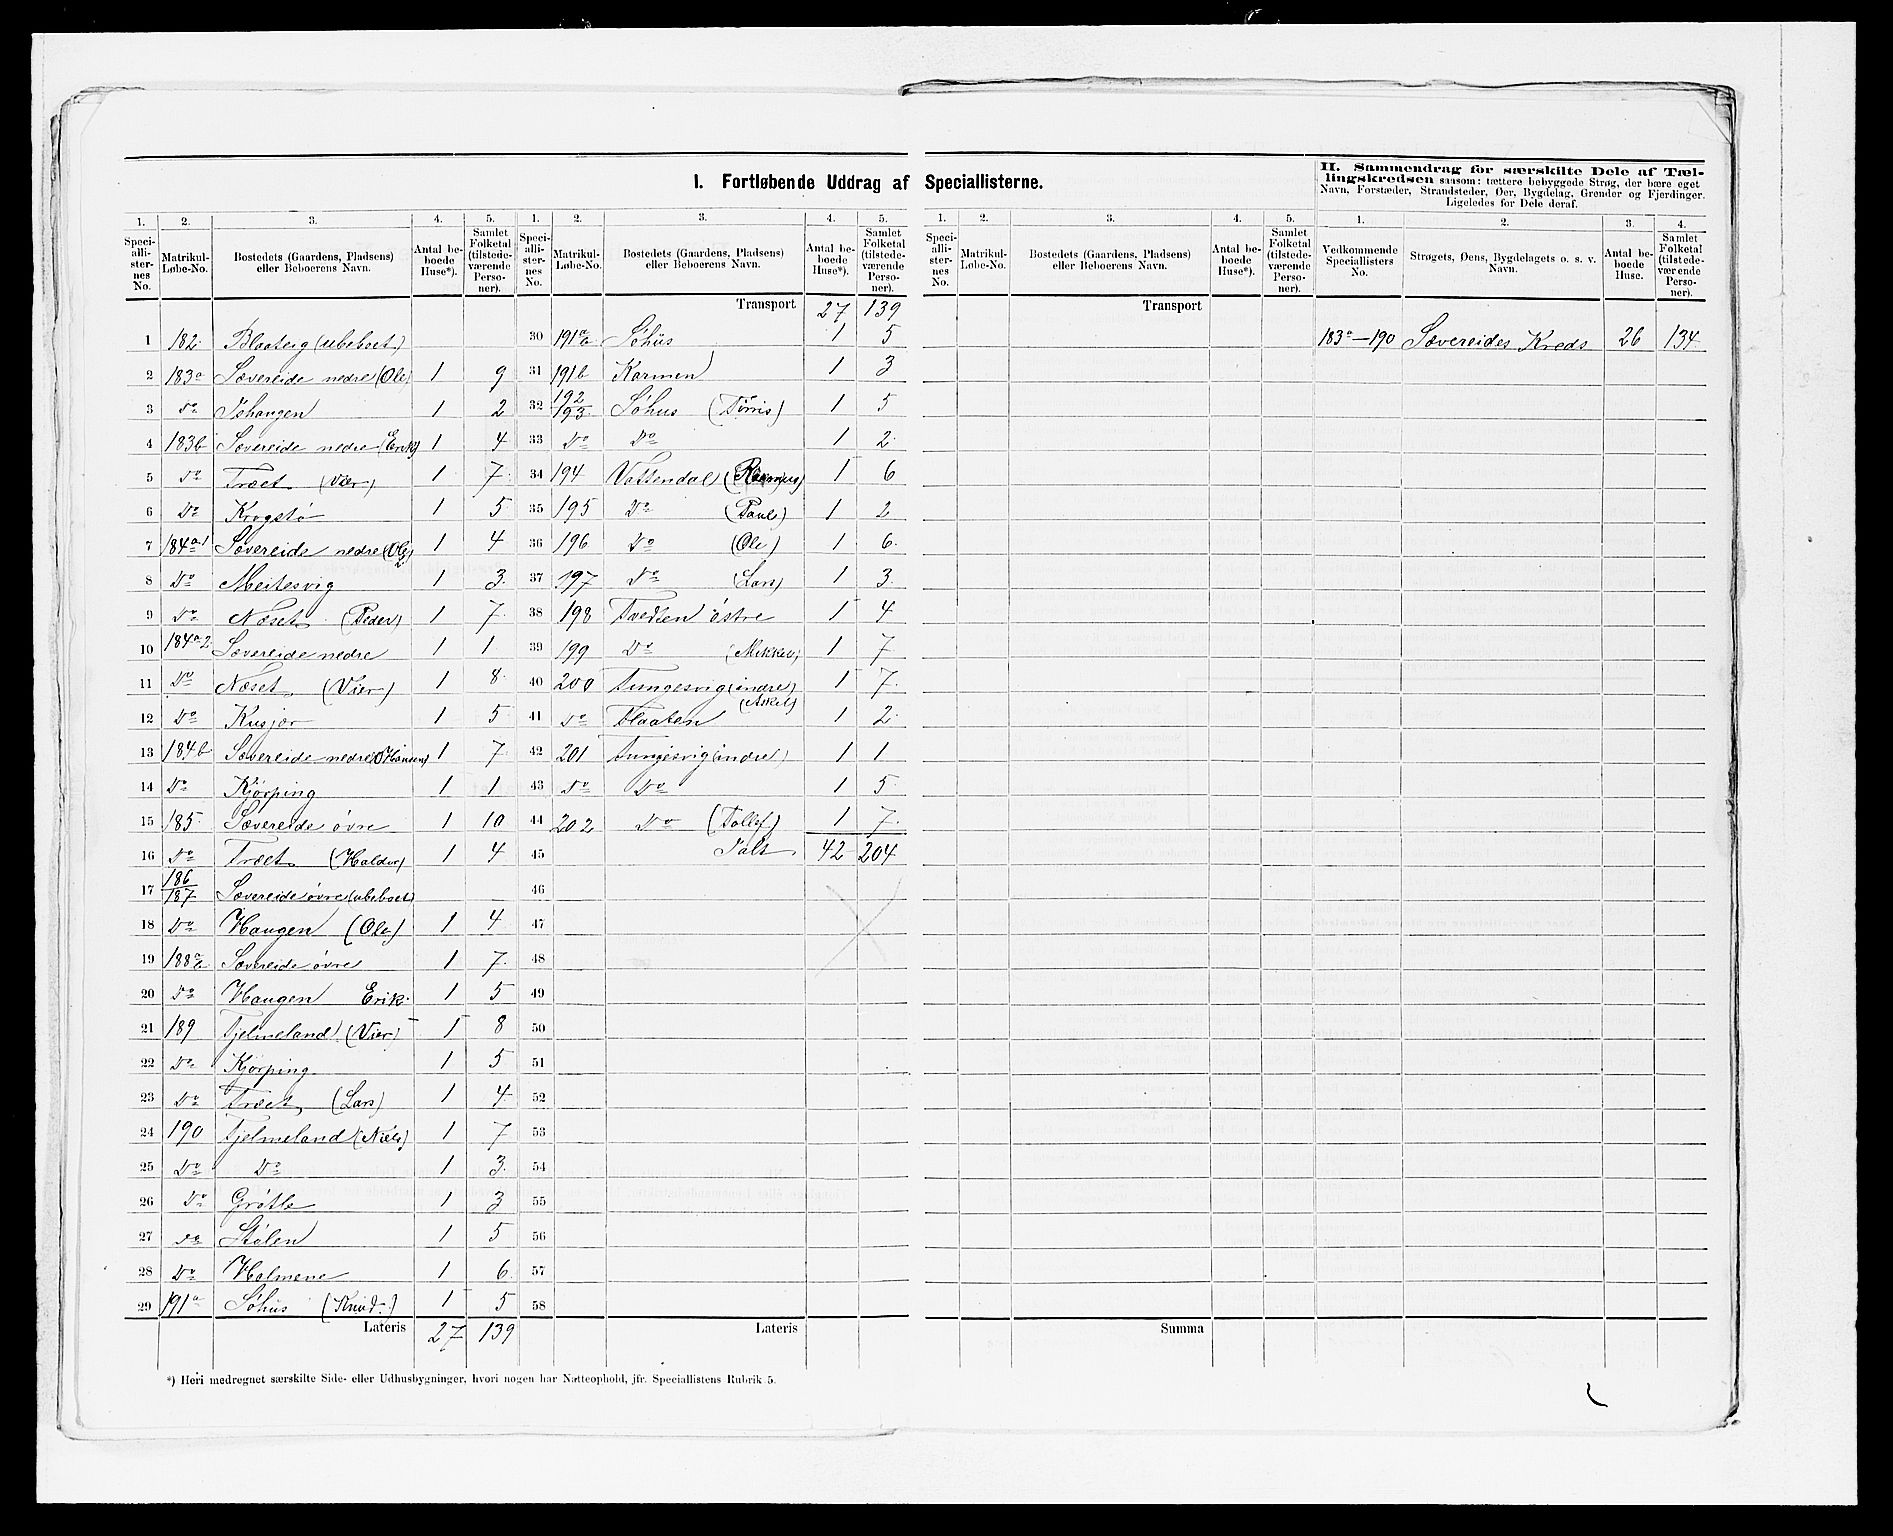 I. Fortløbende Uddrag af Speciallisterne.
II. Sammendrag for særskilte Dele af Tæl-
lingskredsen saasom: tættere bebyggede Strøg, der bære eget
Navn, Forstæder, Strandsteder, Øer, Bygdelag, Grender og Fjerdinger.
Ligeledes for Dele deraf.
1. 2. 3. 4. 5. 1. 2. 3. 4. 5. 1. 2. 3. 4. 5. 1. 2. 3. 4.
Speciallisternes No. Matrikul-Løbe-No. Bostedets (Gaardens, Pladsens) eller Beboerens Navn. Antal beboede Huse*). Samlet Folketal (tilstedeværende Personer).
Speciallisternes No. Matrikul-Løbe-No. Bostedets (Gaardens, Pladsens) eller Beboerens Navn. Antal beboede Huse*). Samlet Folketal (tilstedeværende Personer).
Speciallisternes No. Matrikul-Løbe-No. Bostedets (Gaardens, Pladsens) eller Beboerens Navn. Antal beboede Huse*). Samlet Folketal (tilstedeværende Personer).
Vedkommende Speciallisters No. Strøgets, Øens, Bygdelagets o. s. v. Navn. Antal beboede Huse. Samlet Folketal (tilstedeværende Personer).
1 182. Blaateig (ubeboet)
2 183a Sævereide nedre (Ole) 1 9
3 Do Ishaugen 1 2
4 183b Sævereide nedre (Erik) 1 4
5 Do Træet (Vier) 1 7
6 Do Krogstø 1 5
7 184a1 Sævereide nedre (Ole) 1 4
8 Do Meitesvig 1 3
9 Do Næset (Peder) 1 7
10 184a2 Sævereide nedre 1 1
11 Do Næset (Vier) 1 8
12 Do Kusjær 1 5
13 184b Sævereide nedre (Hansen) 1 7
14 Do Kjørping 1 1
15 185 Sævereide øvre 1 10
16 Do Træet (Haldor) 1 4
17 186/187 Sævereide øvre (ubeboet)
18 Do Haugen (Ole) 1 4
19 188a Sævereide øvre 1 7
20 Do Haugen Erik 1 5
21 189 Tjelmeland (Vier) 1 8
22 Do Kjørping 1 5
23 Do Træet (Lars) 1 4
24 190 Tjelmeland (Niels) 1 7
25 Do Do 1 3
26 Do Grøtle 1 3
27 Do Stølen 1 5
28 Do Holmene 1 6
29 191a Søhus (Knud.) 1 5
Lateris 27 139
Transport 27 139
30 191a Søhus 1 5
31 191b Karmen 1 3
32 192/193 Søhus (Tørris) 1 5
33 Do Do 1 2
34 194 Vattendal (Rasmus) 1 6
35 195 Do (Paul) 1 2
36 196 Do (Ole) 1 6
37 197 Do (Lars) 1 3
38 198 Tvedten østre 1 4
39 199 Do (Mikkel) 1 7
40 200 Tungesvig (indre) (Askel) 1 7
41 Do Flaaten 1 2
42 201 Tungesvig (indre) 1 1
43 Do Do 1 5
44 202 Do (Tollef) 1 7
45 Ialt 42 204
46
47
48
49
50
51
52
53
54
55
56
57
58
Lateris
Transport
Summa
183a–190 Sævereides Kreds 26 134
*) Heri medregnet særskilte Side- eller Udhusbygninger, hvori nogen har Natteophold, jfr. Speciallistens Rubrik 5.